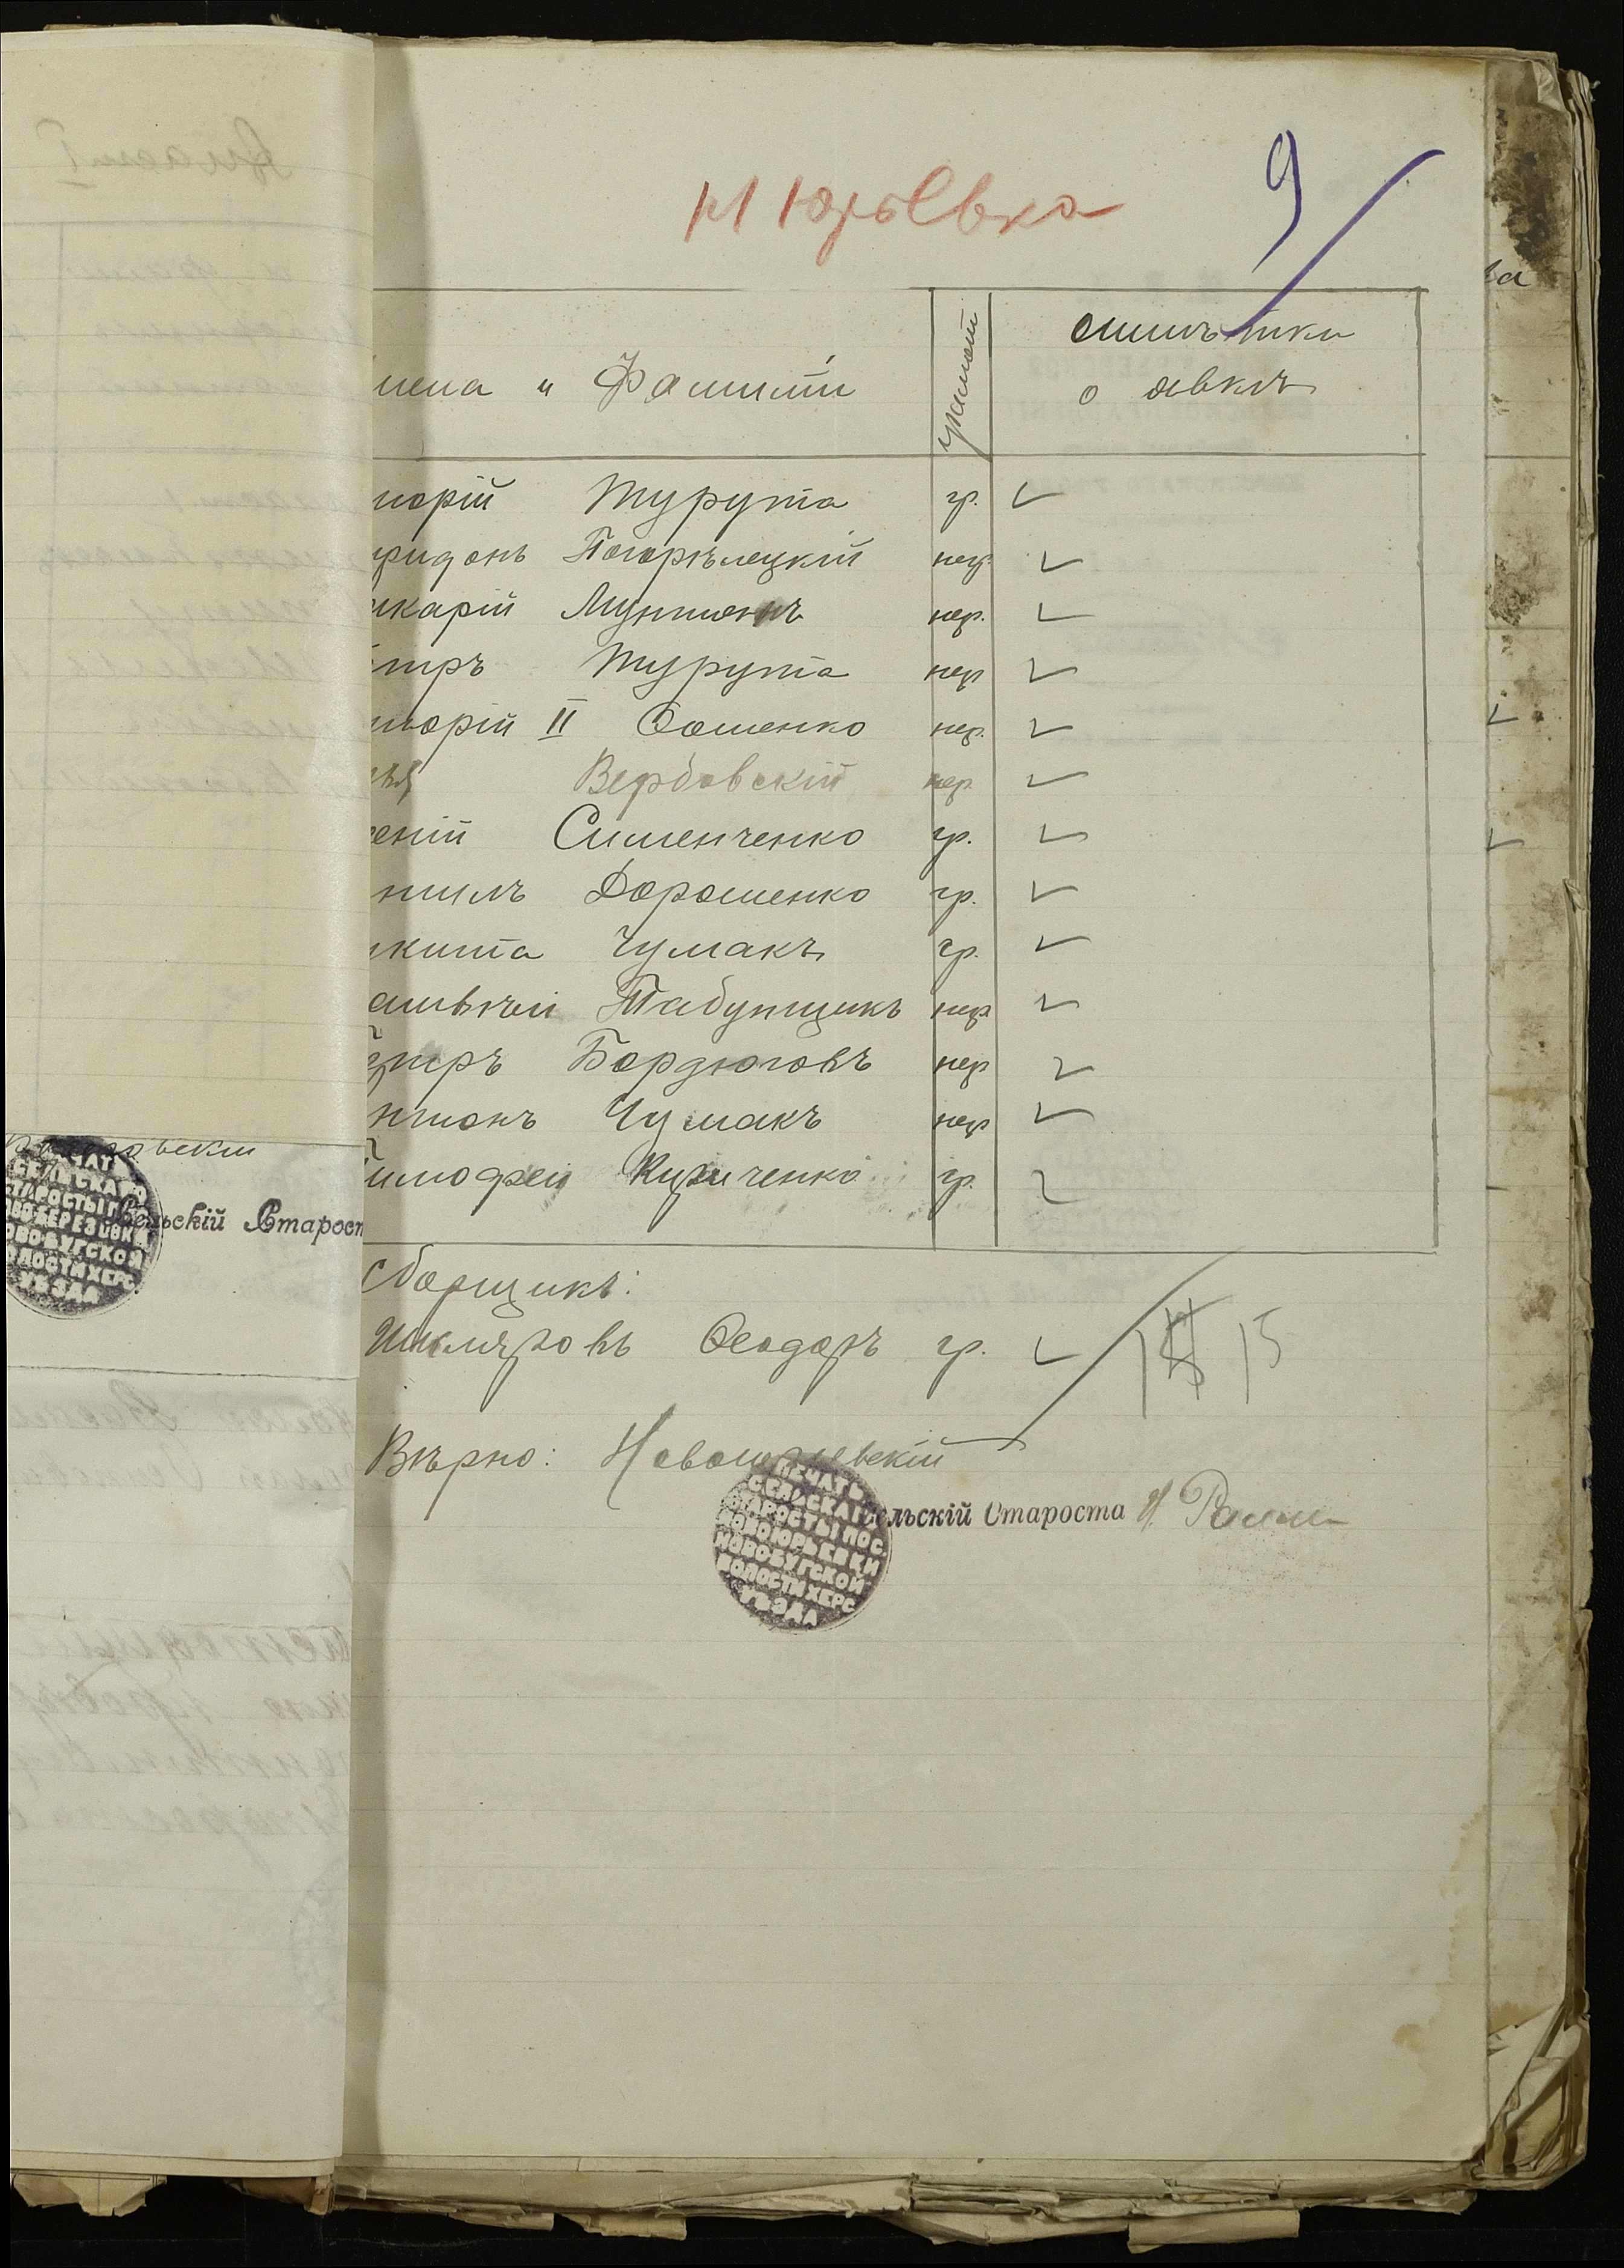 Н Юрьевка
9
мена и Фамиліи
грамот
отмѣтки
о явкѣ
горій Турута гр.
иридонъ Погорѣлецкій негр.
карій Мунтянъ негр.
тръ Турута негр
игорій II Фоменко негр.
лья Вербовскій негр
сеній Сименченко гр.
ниилъ Дорошенко гр.
икита Чумакъ гр.
атвѣй Табунщикъ негр
етръ Бордюговъ негр
нтонъ Чумакъ негр
имофей Кириченко гр.
сборщикъ:
Шкляровъ Феодоръ гр.
15
Вѣрно: Новоюрьевскій
Сельскій Староста
ПЕЧАТЬ
СЕЛЬСКАГО
СТАРОСТЫ ПОС.
НОВОЮРЬЕВКИ
НОВОБУГСКОЙ
ВОЛОСТИ ХЕРС
УѢЗДА
ПЕЧАТЬ
СЕЛЬСКАГО
СТАРОСТЫ П
НОВОБЕРЕЗОВКИ
НОВОБУГСКОЙ
ВОЛОСТИ ХЕРС
УѢЗДА
Сельскій Старост
ва